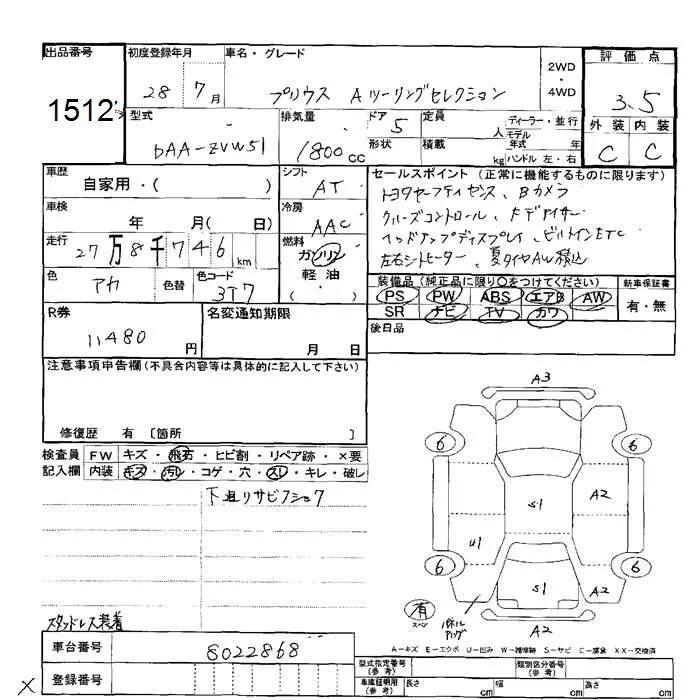 出品番号 1512
初度登録年月 28 7月
車名・グレード プリウス Aツーリングセレクション
2WD・4WD
評価点 3.5
外装 内装
C C
型式 DAA-ZVW51
排気量 1800cc
ドア 5
形状
定員 人
積載 kg
ディーラー・並行
モデル年式 年
ハンドル 左・右
車歴 自家用・( )
シフト AT
車検 年 月( 日)
冷房 AAC
走行 27万8千746km
燃料 ガソリン 軽油・( )
色 アカ
色替
色コード 3T7
セールスポイント(正常に機能するものに限ります)
トヨタセーフティセンス、Bカメラ
クルーズコントロール、
ヘッドアップディスプレイ、ビルトインETC
左右シートヒーター、夏タイヤAW積込
装備品(純正品に限り○をつけてください)
新車保証書
PS PW ABS エアB AW
有・無
SR ナビ TV カワ
後日品
R券 11480円
名変通知期限 月 日
注意事項申告欄(不具合内容等は具体的に記入して下さい)
修復歴 有 〔箇所 〕
検査員記入欄
FW キズ・飛石・ヒビ割・リペア跡・×要
内装 キズ・汚レ・コゲ・穴・スレ・キレ・破レ
下廻りサビ
A3
6 6
S1 A2
U1
6 S1 A2 6
有 スペア
A2
スタッドレス装着
A-キズ E-エクボ U-凹み W-補修跡 S-サビ C-腐食 XX-交換済
車台番号 8022868
型式指定番号(参考)
類別区分番号(参考)
× 登録番号
車庫証明用(参考) 長さ cm 幅 cm 高さ cm